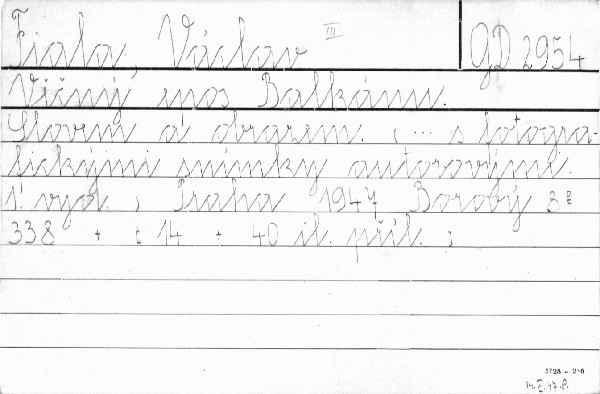 Fiala, Václav III GD 2954
Věčný epos Balkánu.
Slovem a obrazem. ( ... s fotogra-
fickými snímky autorovými.
1. vyd. ) Praha 1947 Borový 8°
338 + [ 14 + 40 il. příl. ]
3728 - 246
14.X.47.P.